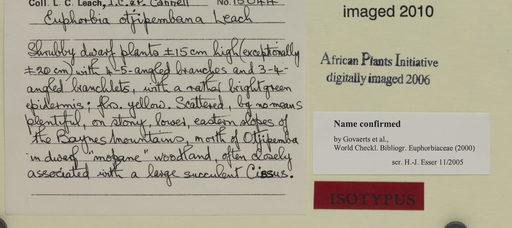 Coll. L. C. Leach, I.C. & P. Cannell No. 15044
Euphorbia otjipembana Leach
Shrubby dwarf plants ±15cm high (exceptionally
±20cm) with 4-5-angled branches and 3-4-
angled branchlets, with a rather bright green
epidermis; flrs. yellow. Scattered, by no means
plentiful, on stony, lower, eastern slopes of
the Baynes Mountains, north of Otjipemba
in dwarf "mopane" woodland, often closely
associated with a large succulent Cissus.
imaged 2010
African Plants Initiative
digitally imaged 2006
Name confirmed
by Govaerts et al.,
World Checkl. Bibliogr. Euphorbiaceae (2000)
scr. H.-J. Esser 11/2005
ISOTYPUS